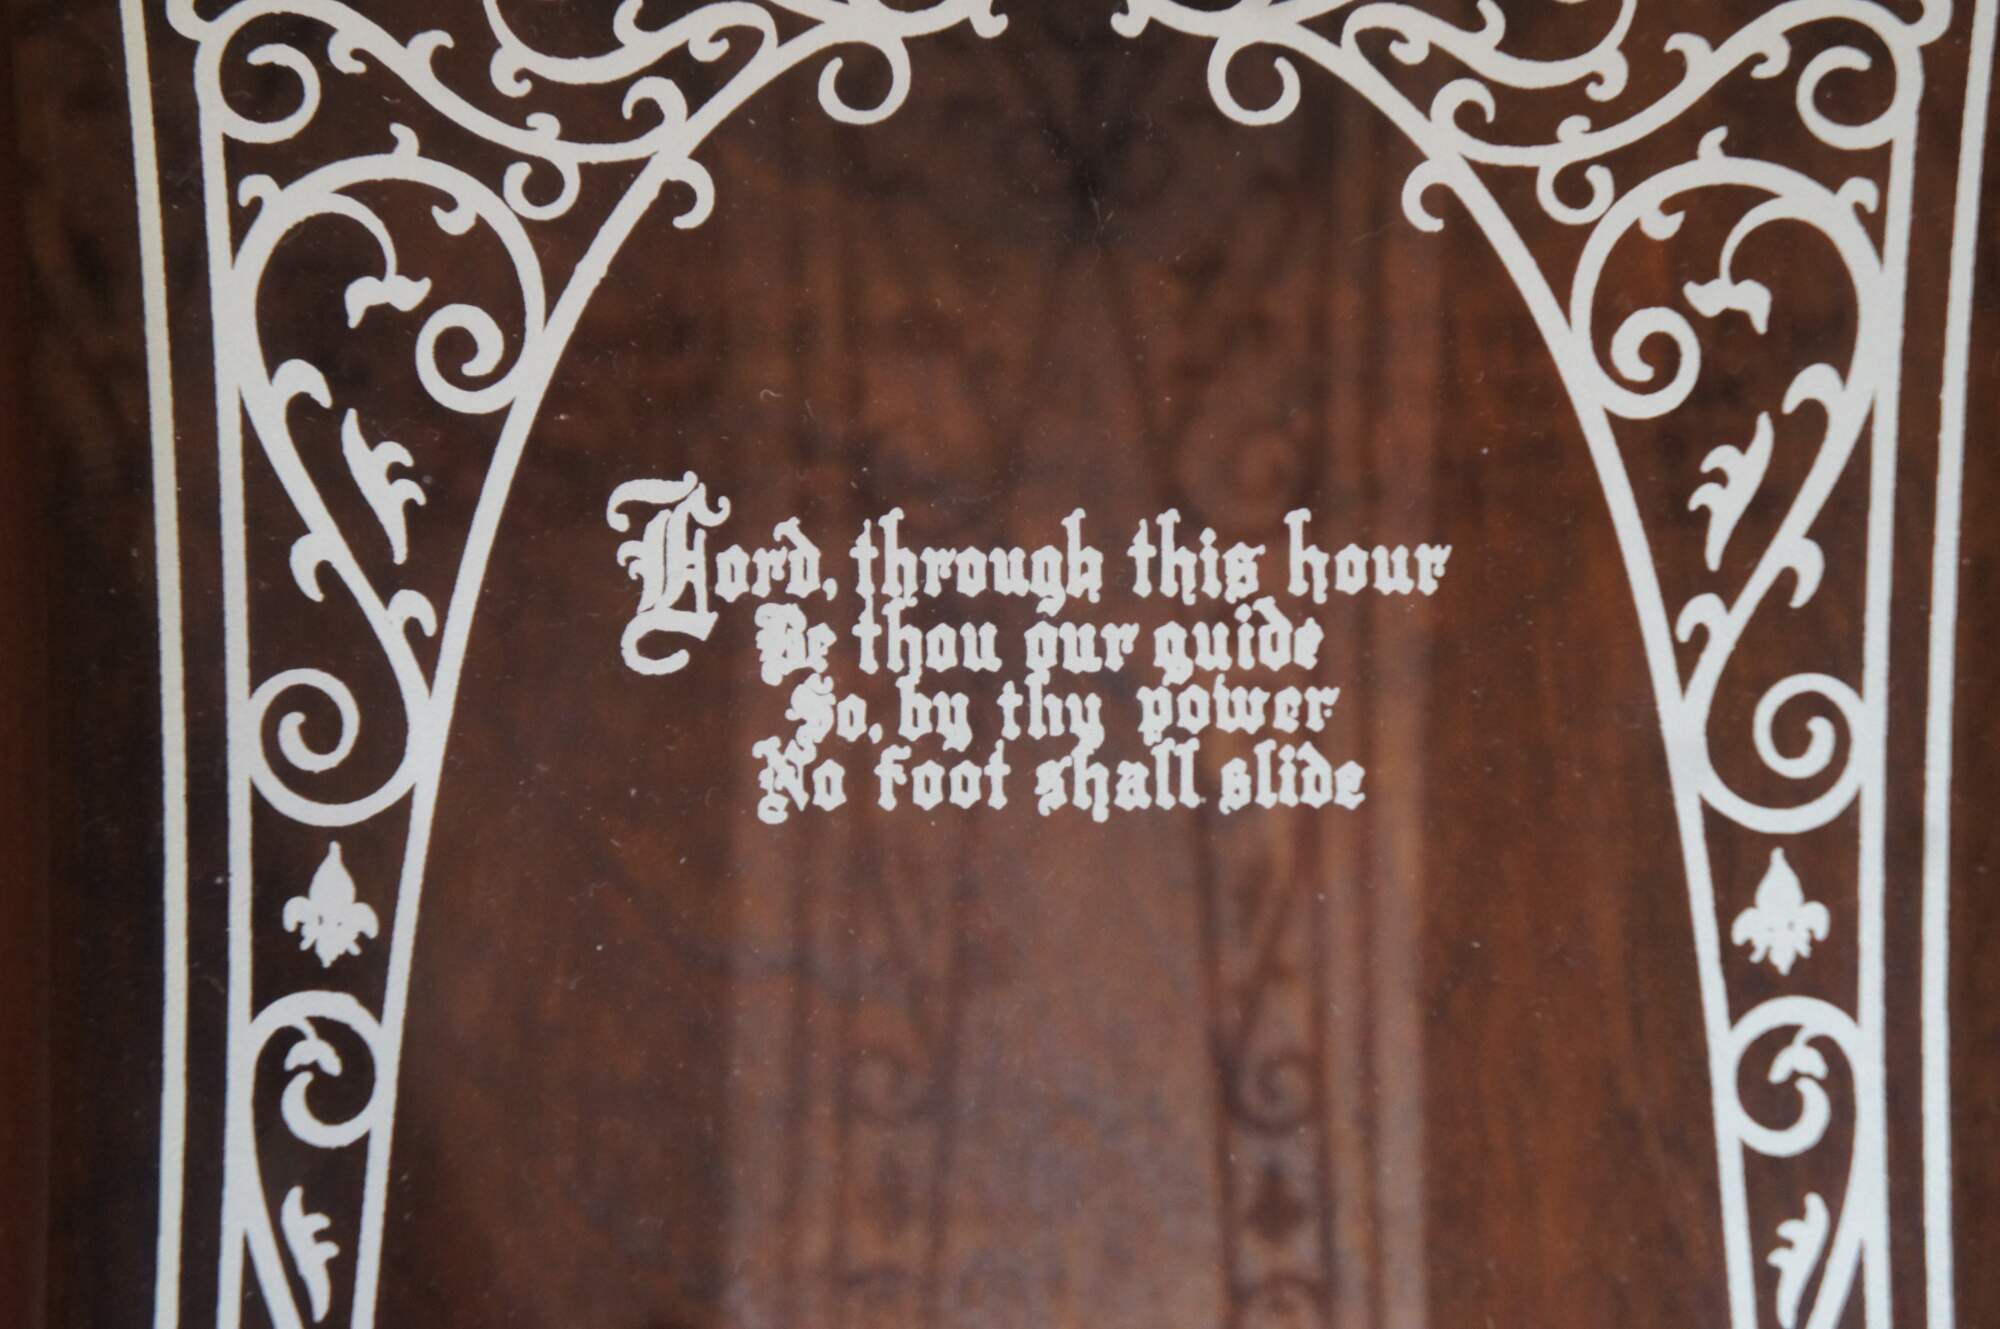 Lord, through this hour
Be thou our guide
So, by thy power
No foot shall slide